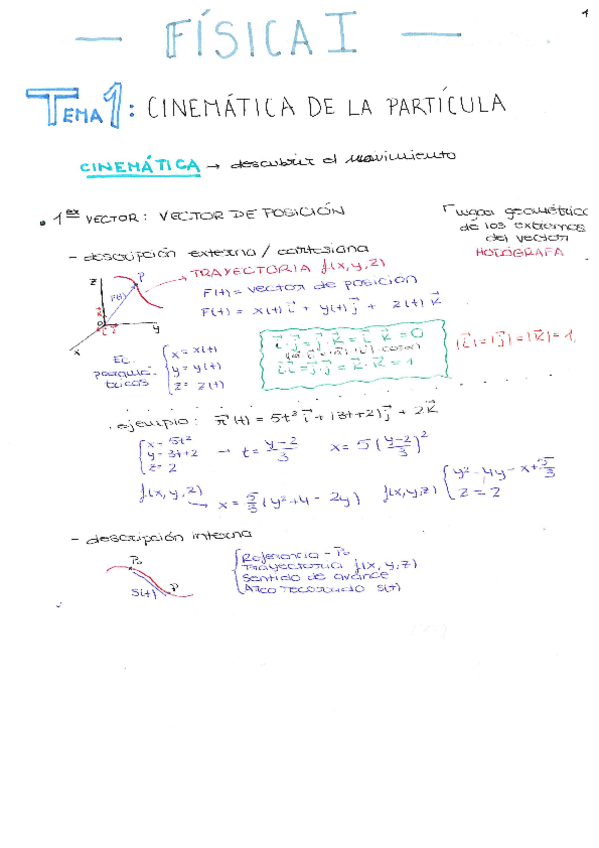 1
FÍSICA I
TEMA 1: CINEMÁTICA DE LA PARTÍCULA
CINEMÁTICA → describir el movimiento
• 1er VECTOR: VECTOR DE POSICIÓN
lugar geométrico
de los extremos
del vector
HODÓGRAFA
- descripción externa / cartesiana
→ TRAYECTORIA f(x,y,z)
r(t) = vector de posición
r(t) = x(t) i + y(t) j + z(t) k
z
P
r(t)
O
y
x
Ec.
paramé-
tricas
x = x(t)
y = y(t)
z = z(t)
i · j = j · k = i · k = 0
i·i = j·j = k·k = 1
|i| = |j| = |k| = 1,
. ejemplo: r(t) = 5t² i + (3t+2) j + 2k
x = 5t²
y = 3t+2
z = 2
→ t = (y-2)/3
x = 5((y-2)/3)²
f(x,y,z)
→ x = 5/3 (y²+4-2y)
f(x,y,z) { y² - 4y - x + 5/3
z = 2
- descripción interna
Po
P
S(t)
Referencia - Po
Trayectoria f(x,y,z)
Sentido de avance
Arco recorrido S(t)